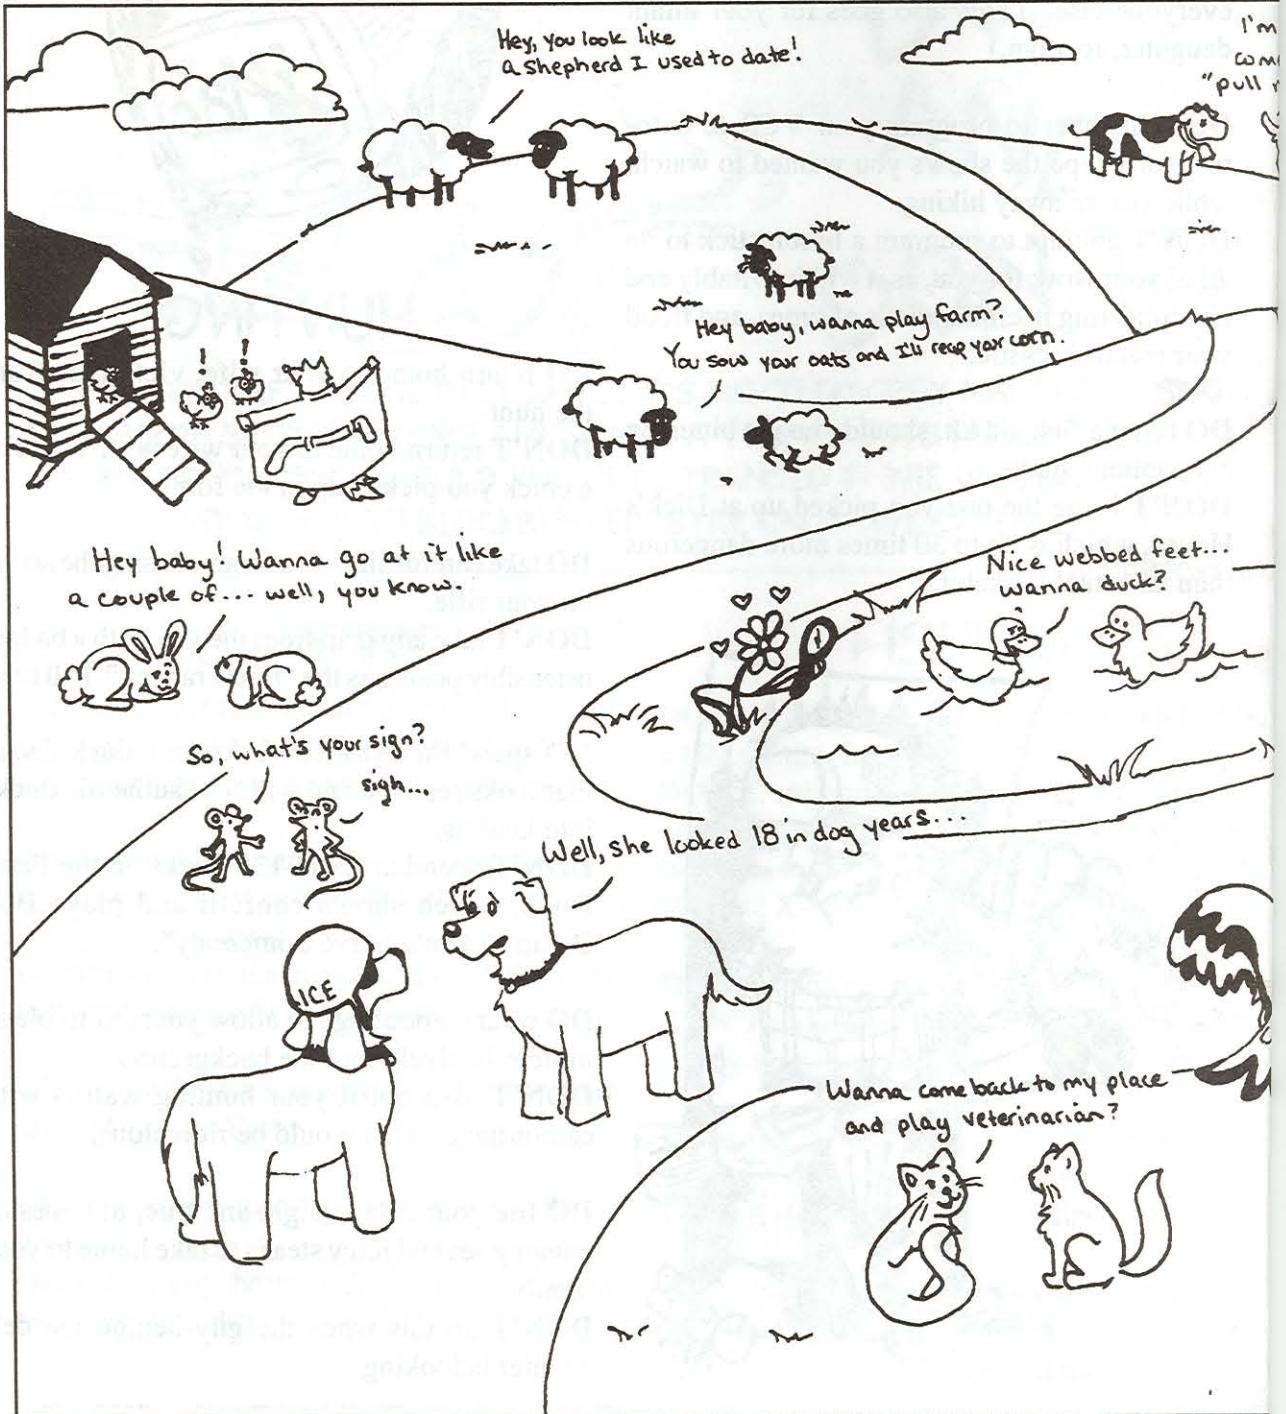 Hey, you look like
a shepherd I used to date!
I'm
"pull
Hey baby, wanna play farm?
You sow your oats and I'll reap your corn.
! !
Hey baby! Wanna go at it like
a couple of... well, you know.
Nice webbed feet...
wanna duck?
So, what's your sign?
sigh...
Well, she looked 18 in dog years...
ICE
Wanna come back to my place
and play veterinarian?